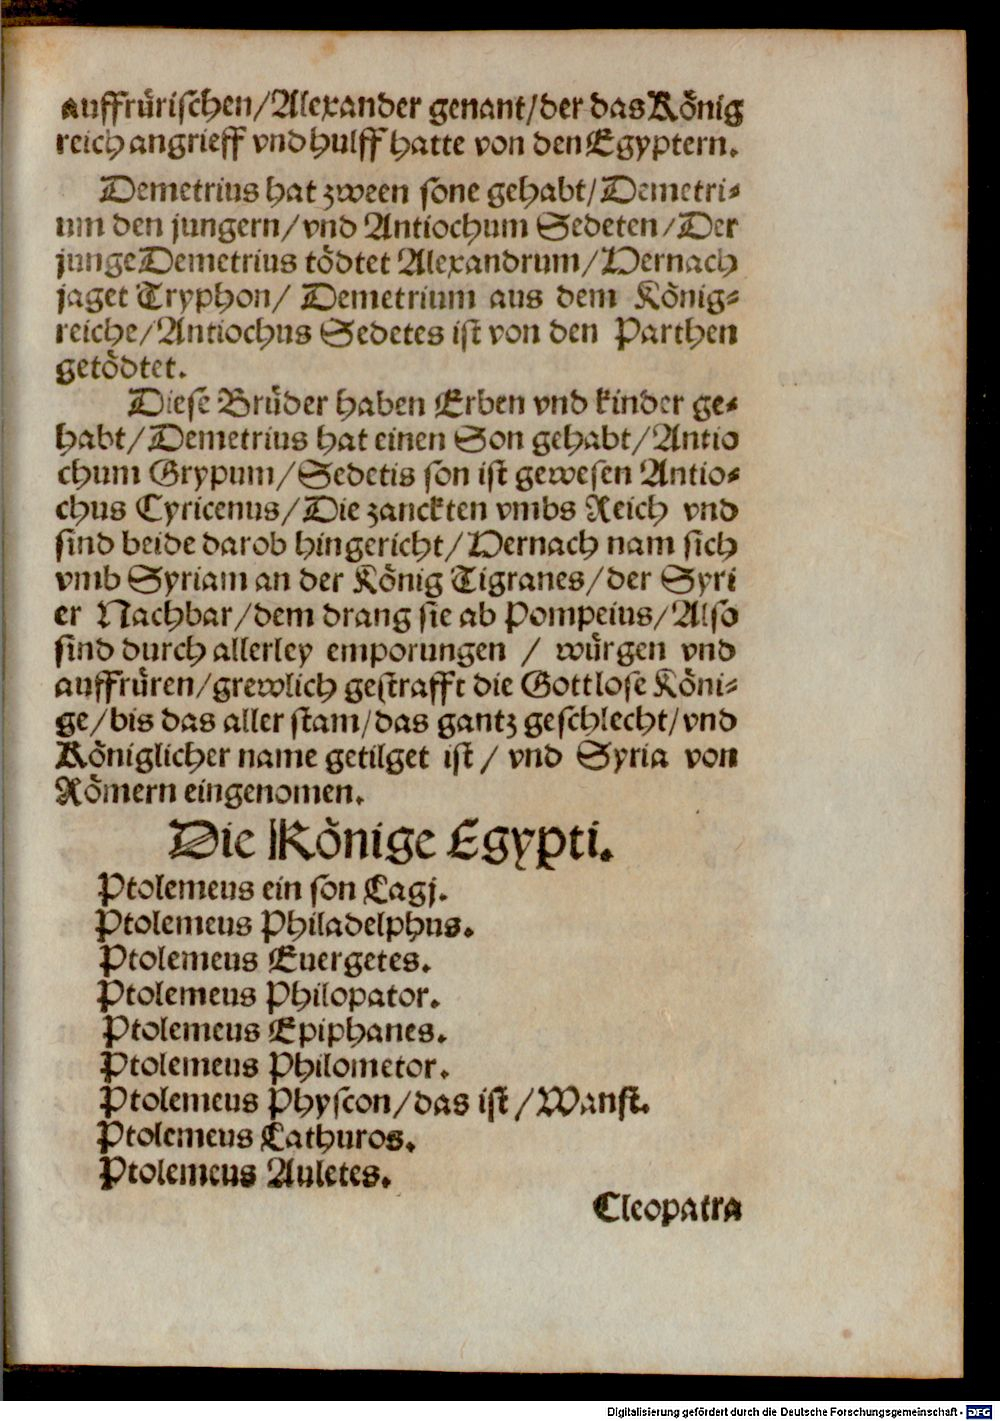 auffrürischen/Alexander genant/der das König
reich angrieff vnd hulff hatte von den Egyptern.
Demetrius hat zween sone gehabt/Demetri-
um den jungern/vnd Antiochum Sedeten/Der
junge Demetrius tödtet Alexandrum/Dernach
jaget Tryphon/ Demetrium aus dem König-
reiche/Antiochus Sedetes ist von den Parthen
getödtet.
Diese Brüder haben Erben vnd kinder ge-
habt/Demetrius hat einen Son gehabt/Antio
chum Grypum/Sedetis son ist gewesen Antio-
chus Cyricenus/Die zanckten vmbs Reich vnd
sind beide darob hingericht/Dernach nam sich
vmb Syriam an der König Tigranes/der Syri
er Nachbar/dem drang sie ab Pompeius/Also
sind durch allerley emporungen / würgen vnd
auffrüren/grewlich gestrafft die Gottlose Köni-
ge/bis das aller stam/das gantz geschlecht/vnd
Königlicher name getilget ist / vnd Syria von
Römern eingenomen.
Die Könige Egypti.
Ptolemeus ein son Lagj.
Ptolemeus Philadelphus.
Ptolemeus Euergetes.
Ptolemeus Philopator.
Ptolemeus Epiphanes.
Ptolemeus Philometor.
Ptolemeus Physcon/das ist/Wanst.
Ptolemeus Lathuros.
Ptolemeus Auletes.
Cleopatra
Digitalisierung gefördert durch die Deutsche Forschungsgemeinschaft - DFG